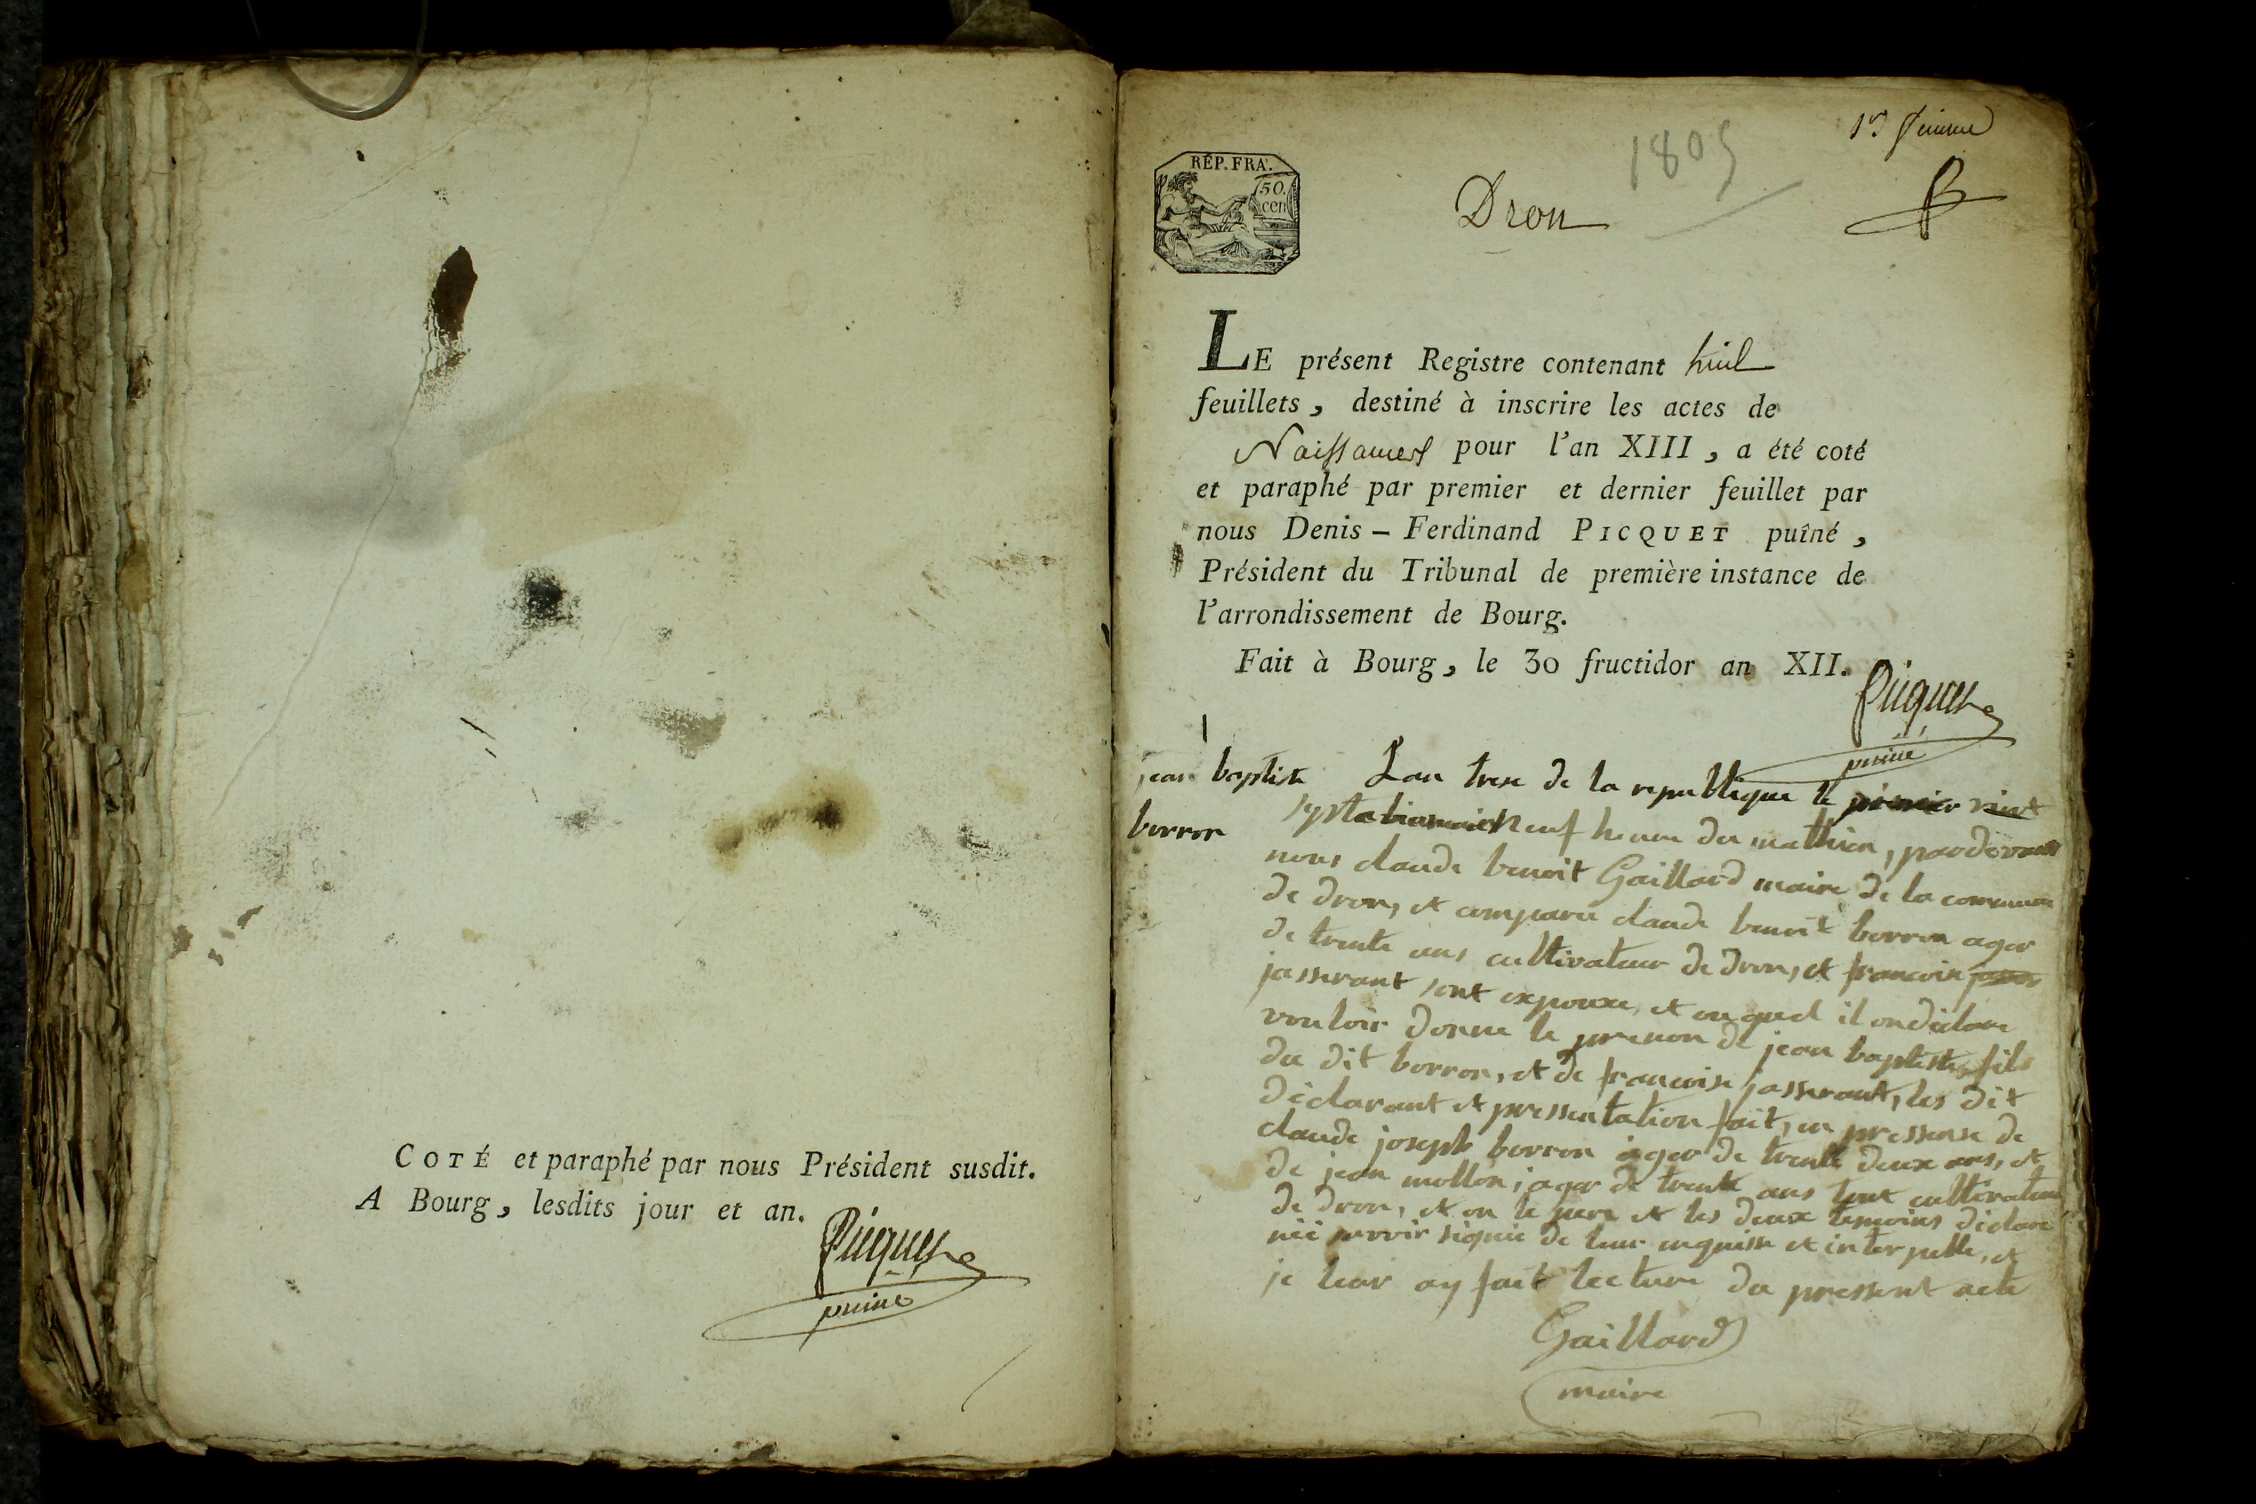 COTÉ et paraphé par nous Président susdit.
A Bourg, lesdits jour et an.
Picquet
puiné
1er feuillet
1805
RÉP. FRA.
50.
cen
Dron
LE présent Registre contenant huit
feuillets, destiné à inscrire les actes de
Naissances pour l'an XIII, a été coté
et paraphé par premier et dernier feuillet par
nous Denis-Ferdinand PICQUET puîné,
Président du Tribunal de première instance de
l'arrondissement de Bourg.
Fait à Bourg, le 30 fructidor an XII.
Picquet
puiné
1
jean baptiste
borron
Lan trese de la republique le premier vint
sept neuf heure du mathien, pardevant
nous claude benoit Gaillard maire de la commune
de dron, et comparu claude benoit borron ager
de trente ans cultivateur de dron, et francoise
jasserant sont expouxe, et auquel il on déclare
vouloir donne le prenon de jean baptiste, fils
du dit borron, et de francoise jasserant, les dit
déclarant et pressentation fait, en pressense de
claude joseph borron ager de trente deux ans, et
de jean mollon, ager de trente ans tout cultivateur
de dron, et on le pere et les deux temoins déclare
néé savoir signié de leur enquisse et interpelle, et
je leur ay fait lecture du pressent acte
Gaillard
maire